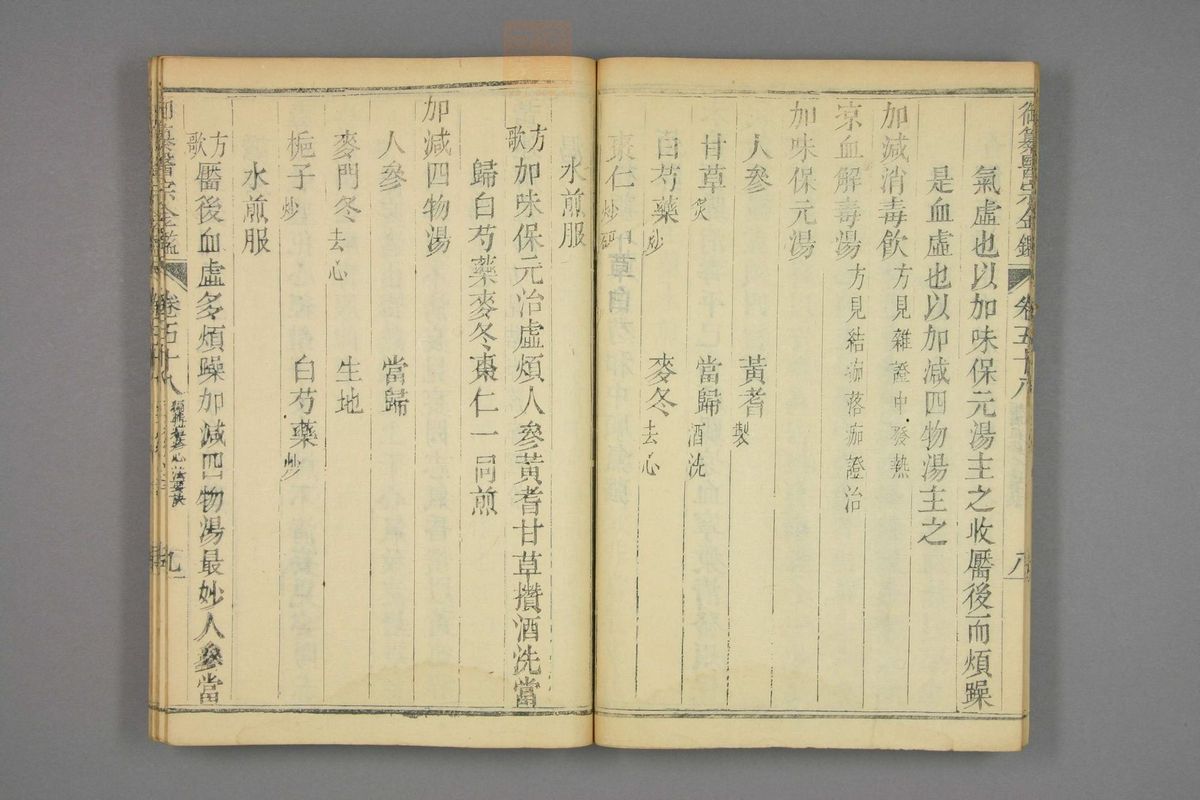 御纂醫宗金鑑 卷五十八 八
氣虛也以加味保元湯主之收靨後而煩躁
是血虛也以加減四物湯主之
加減消毒飲 方見雜證中發熱
涼血解毒湯 方見結痂落痂證治
加味保元湯
人參 黃耆製
甘草炙 當歸酒洗
白芍藥炒 麥冬去心
棗仁炒研
水煎服
方歌 加味保元治虛煩人參黃耆甘草攢酒洗當
歸白芍藥麥冬棗仁一同煎
加減四物湯
人參 當歸
麥門冬去心 生地
梔子炒 白芍藥炒
水煎服
方歌 靨後血虛多煩躁加減四物湯最妙人參當
御纂醫宗金鑑 卷五十八 九